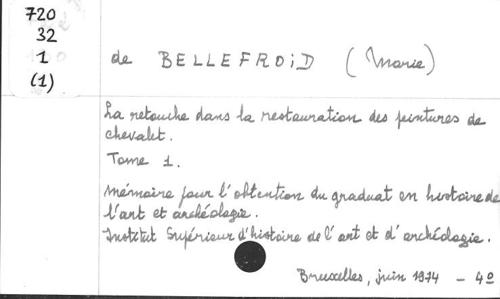 720
32
1
(1)
de BELLEFROID (Marie)
La retouche dans la restauration des peintures de
chevalet.
Tome 1.
Mémoire pour l'obtention du graduat en histoire de
l'art et archéologie.
Institut Supérieur d'histoire de l'art et d'archéologie.
Bruxelles, juin 1974 - 4º